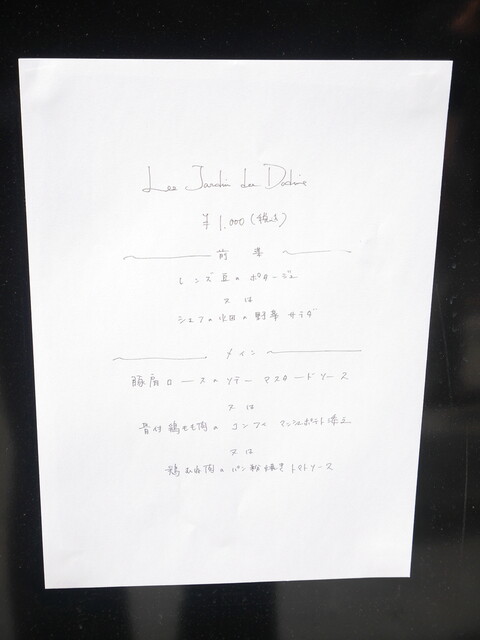 Les Jardin des
¥1,000 (税込)
前菜
レンズ豆のポタージュ
又は
シェフの 野菜サラダ
メイン
豚肩ロースのソテー マスタードソース
又は
骨付鶏もも肉のコンフィ マッシュポテト添え
又は
鶏むね肉のパン粉焼き トマトソース